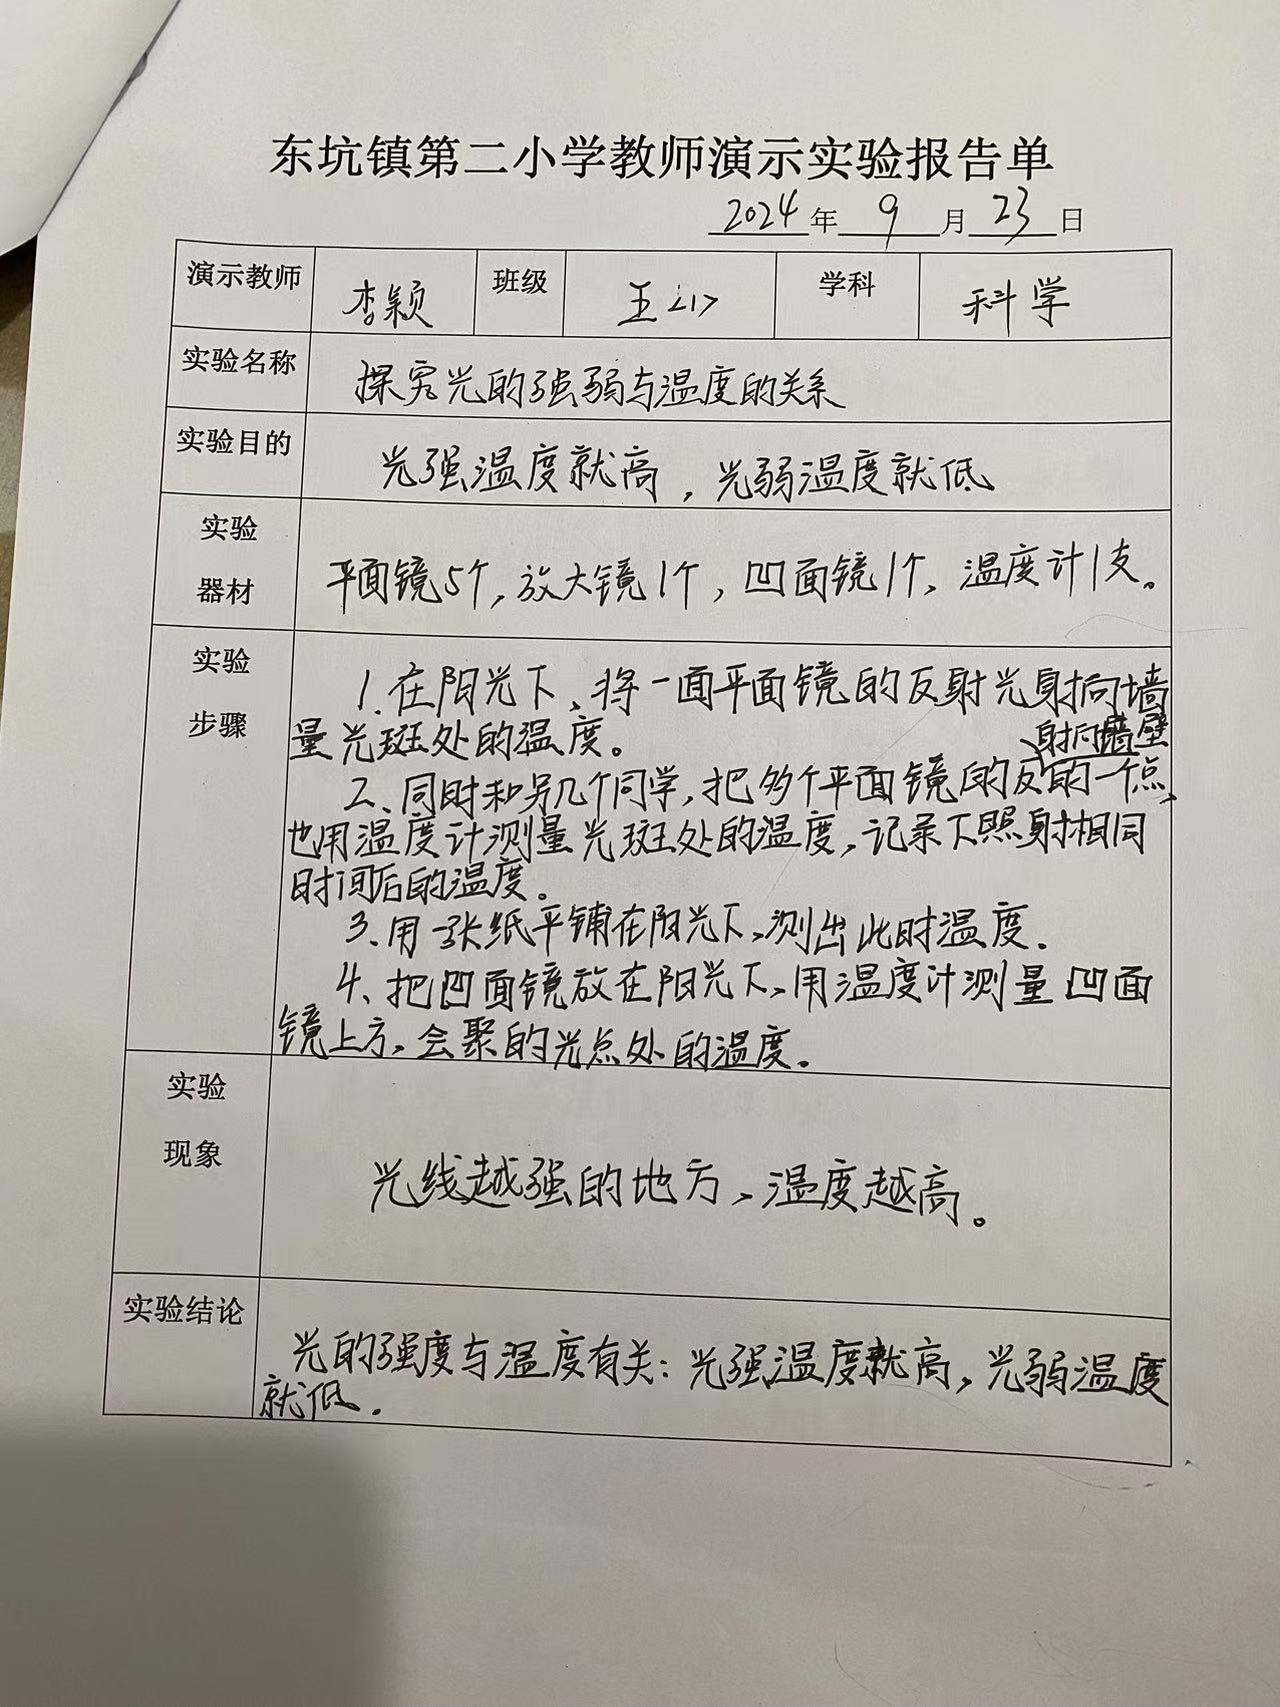 东坑镇第二小学教师演示实验报告单
2024年9月23日
演示教师 李颖 班级 五<1> 学科 科学
实验名称 探究光的强弱与温度的关系
实验目的 光强温度就高，光弱温度就低
实验
器材
平面镜5个，放大镜1个，凹面镜1个，温度计1支。
实验
步骤
1.在阳光下、将一面平面镜的反射光射向墙
量光斑处的温度。
射向墙壁
2、同时和另几个同学，把多个平面镜的反的一个点，
也用温度计测量光斑处的温度，记录下照射相同
时间后的温度。
3、用一张纸平铺在阳光下，测出此时温度．
4、把凹面镜放在阳光下，用温度计测量凹面
镜上方，会聚的光点处的温度。
实验
现象
光线越强的地方，温度越高。
实验结论
光的强度与温度有关：光强温度就高，光弱温度
就低．